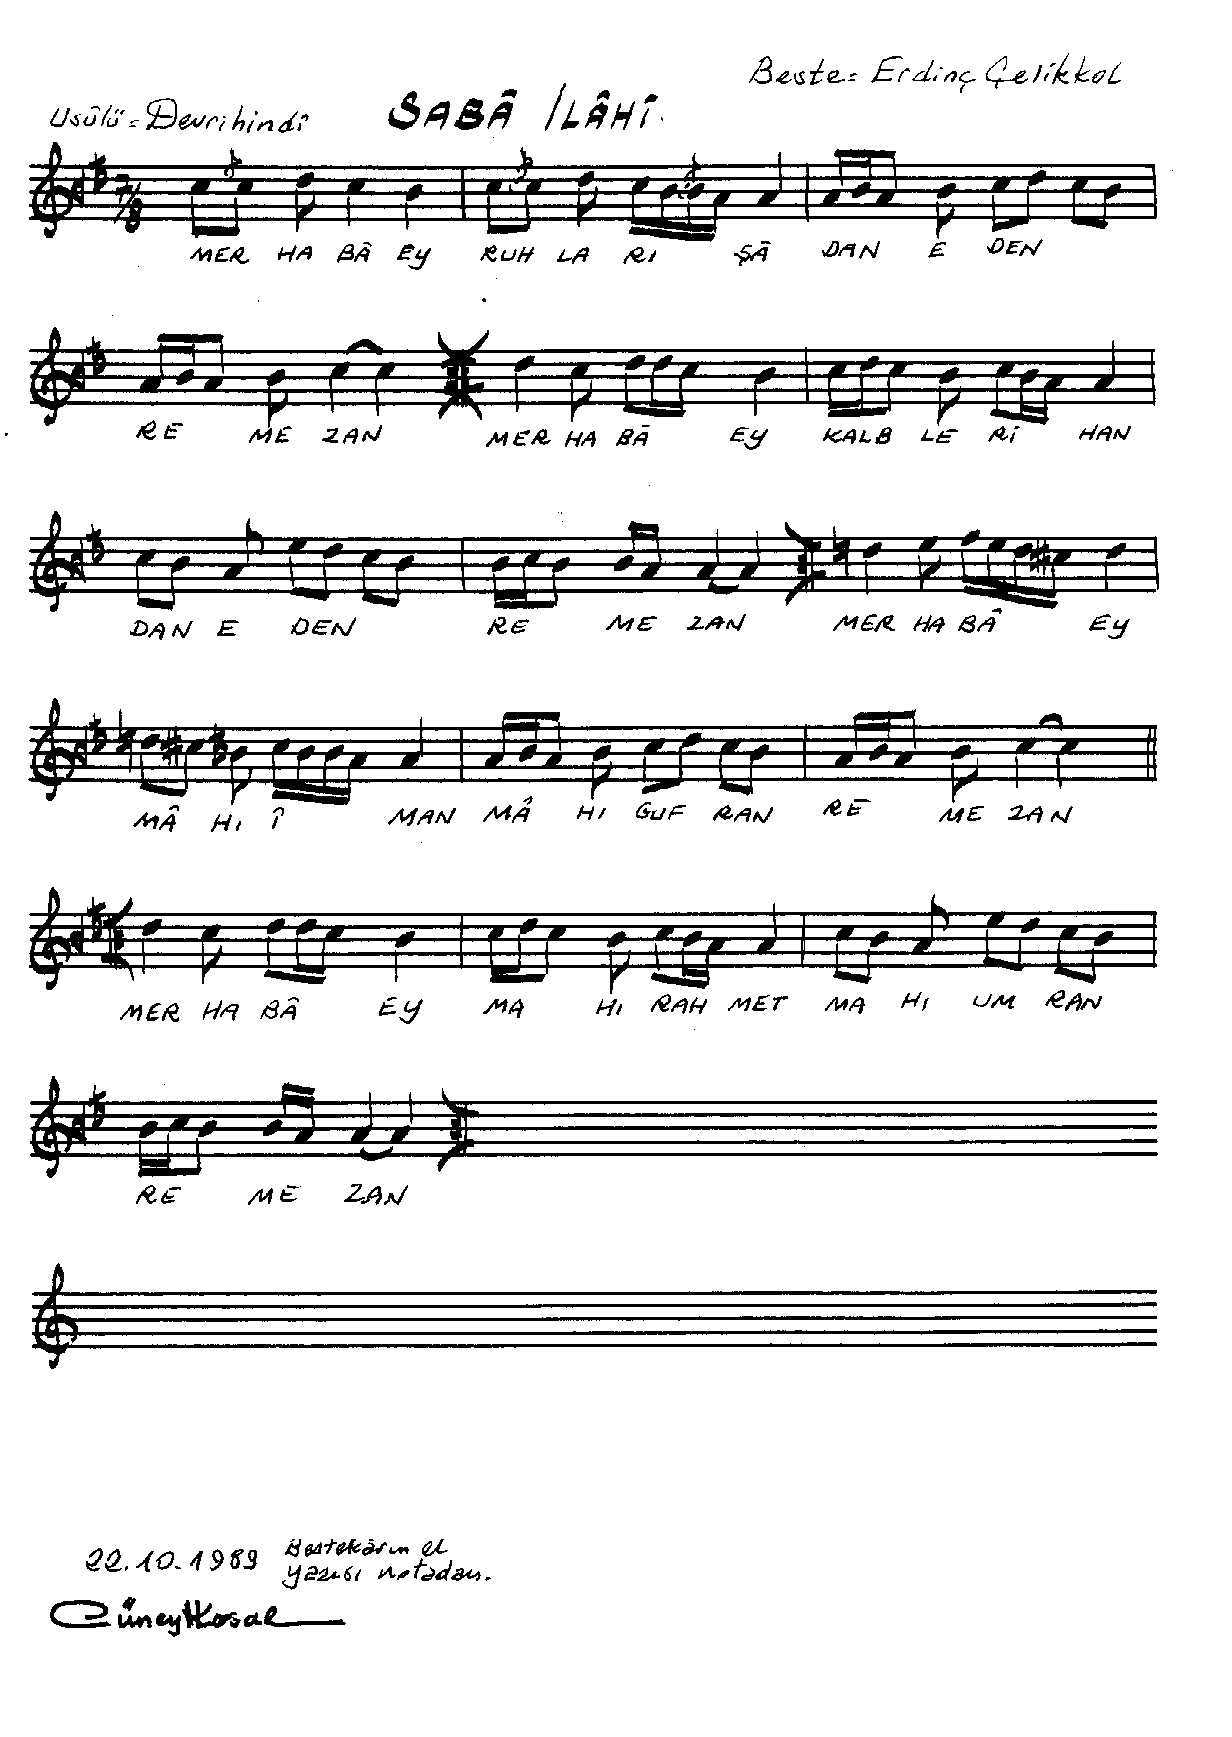 Beste= Erdinç Çelikkol
Usûlü= Devrihindî SABÂ İLÂHÎ.
7/8
MER HA BÂ EY RUH LA RI ŞÂ DAN E DEN
RE ME ZAN MER HA BÂ EY KALB LE Rİ HAN
DAN E DEN RE ME ZAN MER HA BÂ EY
MÂ HI Î MAN MÂ HI GUF RAN RE ME ZAN
MER HA BÂ EY MA HI RAH MET MA HI UM RAN
RE ME ZAN
22.10.1989 Bestekârın el
yazısı notadan.
Cüneyt Kosal